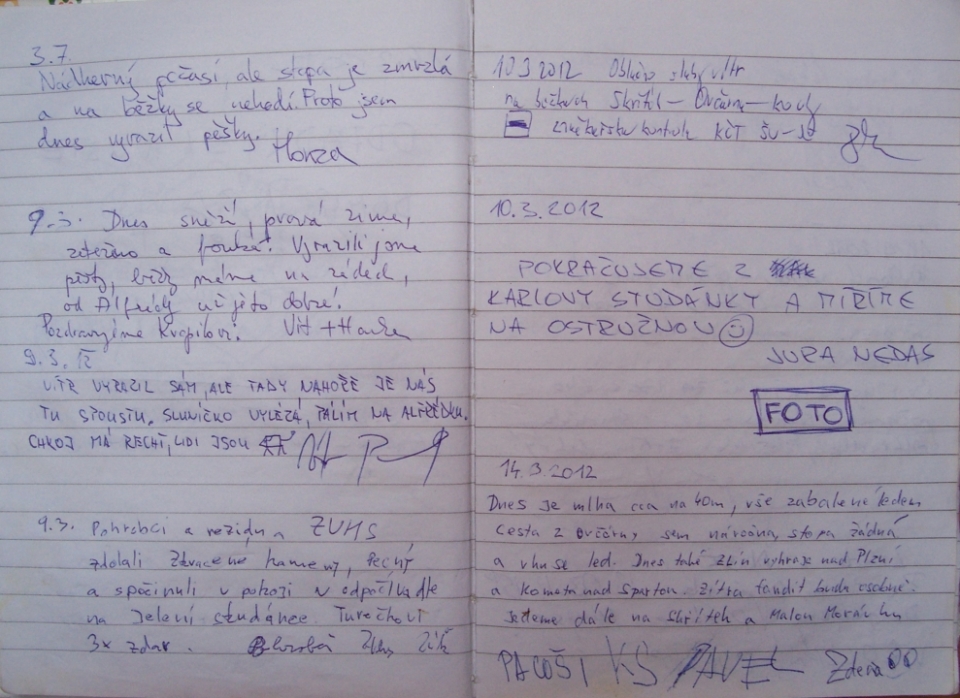 3.7.
Nádherný počasí, ale stopa je zmrzlá
a na běžky se nehodí. Proto jsem
dnes vyrazil pěšky. Honza
9.3. Dnes sněží, pravá zima,
a fouká! Vyrazili jsme
pěšky, běžky máme na zádech,
od Alfrédky už je to dobré!
Pozdravujeme Vít + Hanka
9.3. 12
VÍTR VYRAZIL SÁM, ALE TADY NAHOŘE JE NÁS
TU SPOUSTU. SLUNÍČKO VYLÉZÁ, PÁLÍM NA ALFRÉDKU.
CHKOJ MÁ RECHT, LIDI JSOU
9.3. Pohrobci a rezidua ZUHS
zdolali Ztracené kameny, Pecný
a spočinuli v pokoji v odpočívadle
na Jelení studánce. Turečkovi
3x zdar.
10 3 2012 slabý vítr
na běžkách Skřítek – Ovčárna –
značkařská kontrola KČT
10.3.2012
POKRAČUJEME Z
KARLOVY STUDÁNKY A MÍŘÍME
NA OSTRUŽNOU ☺
JURA NEDAS
FOTO
14.3.2012
Dnes je mlha cca na 40m, vše zabalené ledem
Cesta z Ovčárny sem náročná, stopa žádná
a vhu se led. Dnes také Zlín vyhraje nad Plzní
a Kometa nad Spartou. Zítra fandit budu osobně.
Jedeme dále na Skřítek a Malou Morávku
PACOŠI KS PAVEL Zdena